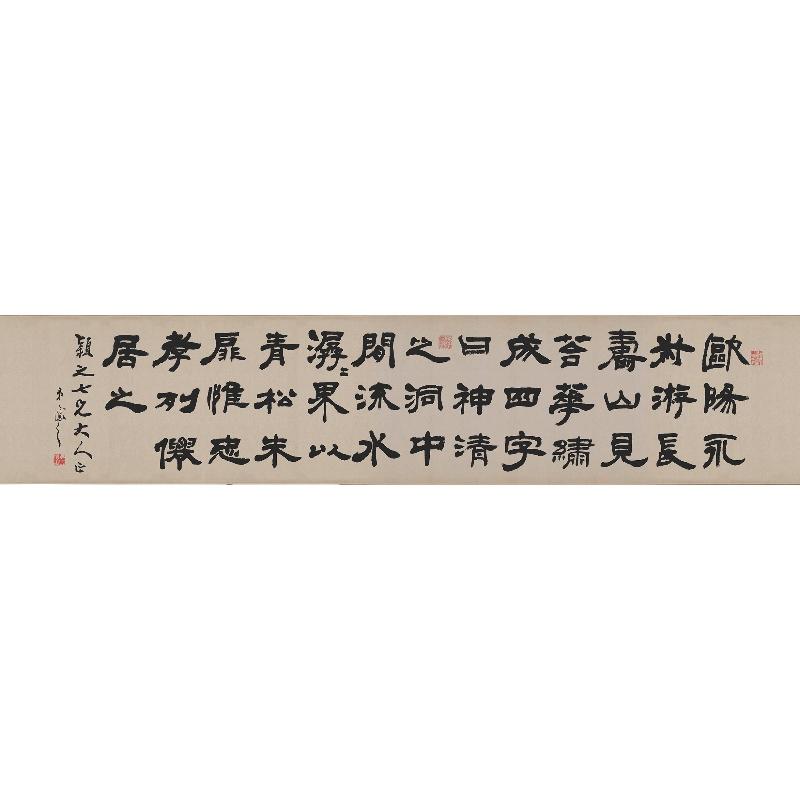 歐陽永
叔游長
壽山見
苔華繡
成四字
曰神清
之洞中
間流水
潺〻界以
青松朱
扉惟忠
孝列僊
居之
穎之七兄大人正
弟之謙